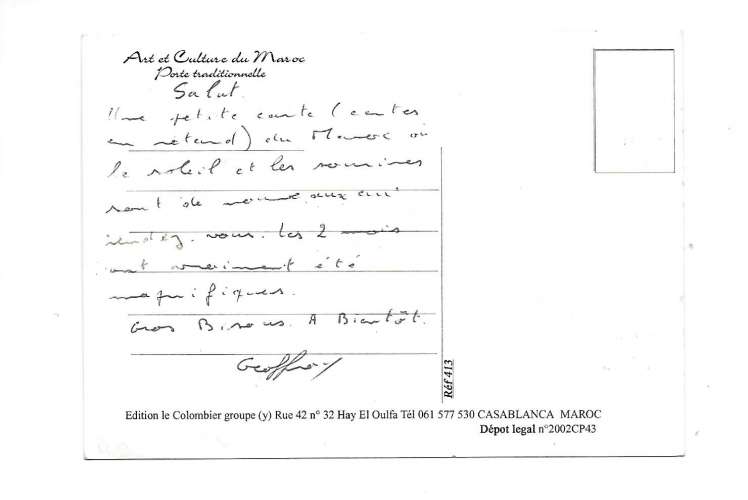 Art et Culture du Maroc
Porte traditionnelle
Salut.
Une petite carte (certes
en retard) du Maroc où
le soleil et les sourires
sont de nouveaux au
rendez. vous. Les 2 mois
ont vraiment été
magnifiques.
Gros Bisous. A Bientôt.
Geoffroy
Réf 413
Edition le Colombier groupe (y) Rue 42 n° 32 Hay El Oulfa Tél 061 577 530 CASABLANCA MAROC
Dépot legal n°2002CP43